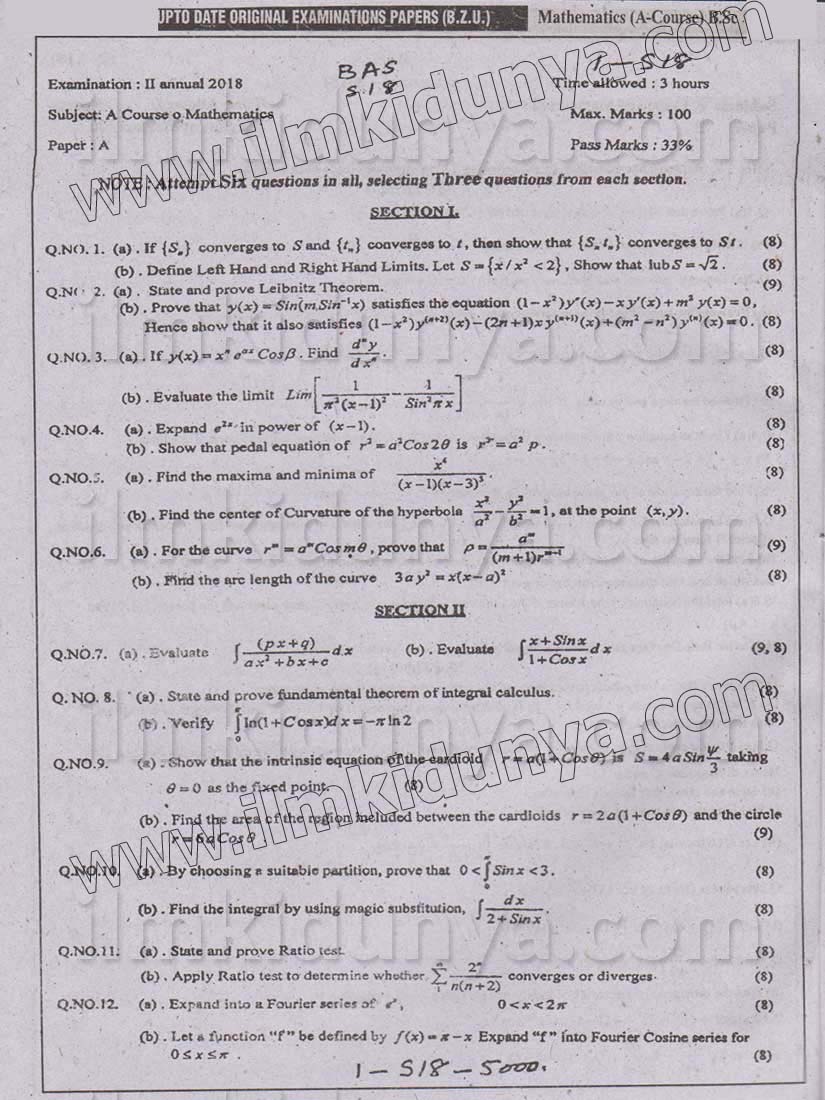 UPTO DATE ORIGINAL EXAMINATIONS PAPERS (B.Z.U.) Mathematics (A-Course) B.Sc
BAS 1-S18
S18
Examination : II annual 2018 Time allowed : 3 hours
Subject: A Course o Mathematics Max. Marks : 100
Paper : A Pass Marks : 33%
NOTE : Attempt Six questions in all, selecting Three questions from each section.
SECTION I.
Q.NO. 1. (a) . If {Sₙ} converges to S and {tₙ} converges to t, then show that {Sₙ tₙ} converges to St . (8)
(b) . Define Left Hand and Right Hand Limits. Let S = {x / x² < 2}, Show that lub S = √2 . (8)
Q.NO 2. (a) . State and prove Leibnitz Theorem. (9)
(b) . Prove that y(x) = Sin(m Sin⁻¹x) satisfies the equation (1 − x²)y″(x) − x y′(x) + m² y(x) = 0,
Hence show that it also satisfies (1 − x²)y⁽ⁿ⁺²⁾(x) − (2n + 1)x y⁽ⁿ⁺¹⁾(x) + (m² − n²) y⁽ⁿ⁾(x) = 0 . (8)
Q.NO. 3. (a) . If y(x) = xⁿ e^(αx) Cosβ . Find dⁿy/dxⁿ . (8)
(b) . Evaluate the limit Lim[1/(π²(x−1)²) − 1/(Sin²πx)] (8)
Q.NO.4. (a) . Expand e²ˣ in power of (x−1) . (8)
(b) . Show that pedal equation of r² = a²Cos2θ is r³ = a² p . (8)
Q.NO.5. (a) . Find the maxima and minima of x⁴/((x−1)(x−3)³) . (8)
(b) . Find the center of Curvature of the hyperbola x²/a² − y²/b² = 1, at the point (x, y) . (8)
Q.NO.6. (a) . For the curve rᵐ = aᵐCosmθ, prove that ρ = aᵐ/((m+1)rᵐ⁻¹) (9)
(b) . Find the arc length of the curve 3ay² = x(x−a)² (8)
SECTION II
Q.NO.7. (a) . Evaluate ∫ (px+q)/(ax²+bx+c) dx (b) . Evaluate ∫ (x+Sinx)/(1+Cosx) dx (9, 8)
Q. NO. 8. (a) . State and prove fundamental theorem of integral calculus. (8)
(b) . Verify ∫₀^π ln(1+Cosx)dx = −π ln 2 (8)
Q.NO.9. (a) . Show that the intrinsic equation of the cardioid r = a(1+Cosθ) is S = 4aSin ψ/3 taking
θ = 0 as the fixed point. (8)
(b) . Find the area of the region included between the cardioids r = 2a(1+Cosθ) and the circle
r = 6aCosθ (9)
Q.NO.10. (a) . By choosing a suitable partition, prove that 0 < ∫₀^π Sinx < 3 . (8)
(b) . Find the integral by using magic substitution, ∫ dx/(2+Sinx) . (8)
Q.NO.11. (a) . State and prove Ratio test. (8)
(b) . Apply Ratio test to determine whether ∑₁^∞ 2ⁿ/(n(n+2)) converges or diverges. (8)
Q.NO.12. (a) . Expand into a Fourier series of eˣ, 0 < x < 2π (8)
(b) . Let a function "f" be defined by f(x) = π − x Expand "f" into Fourier Cosine series for
0 ≤ x ≤ π . (8)
1 - S18 - 5000.
www.ilmkidunya.com
www.ilmkidunya.com
ilmkidunya.com
ilmkidunya.com
ilmkidunya.com
ilmkidunya.com
ilmkidunya.com